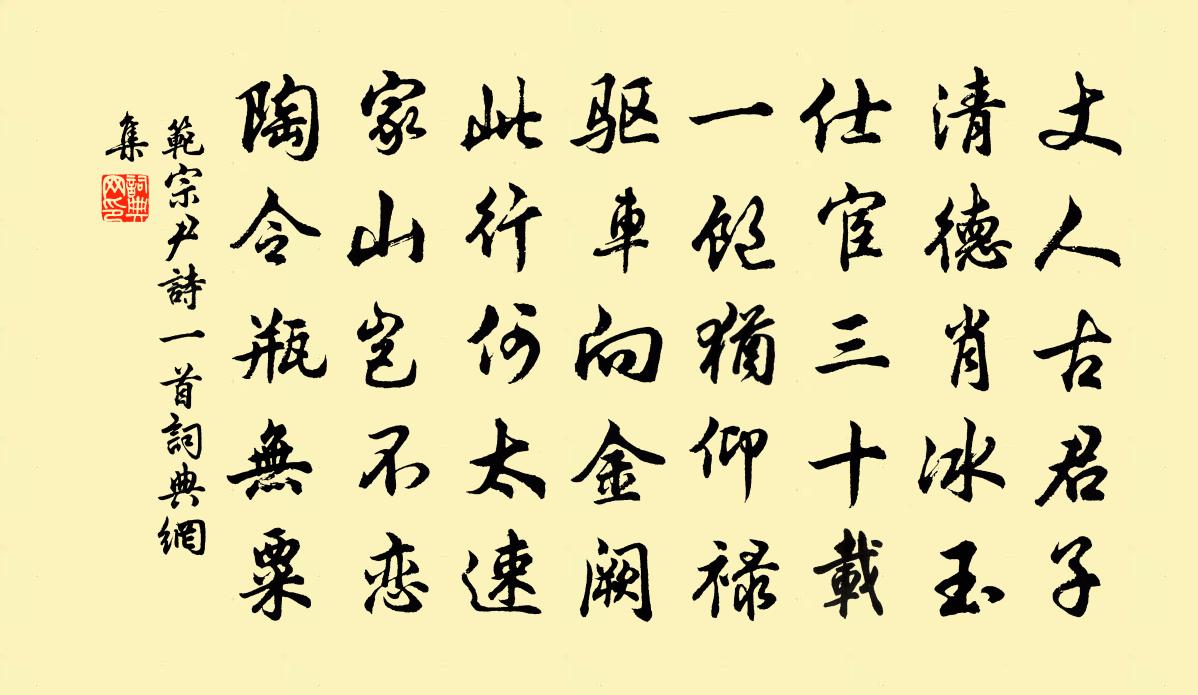 丈人古君子
清德肖冰玉
仕宦三十載
一飽猶仰禄
驱車向金阙
此行何太速
家山岂不恋
陶令瓶無粟
範宗尹詩一首詞典網
集
詞典
网印